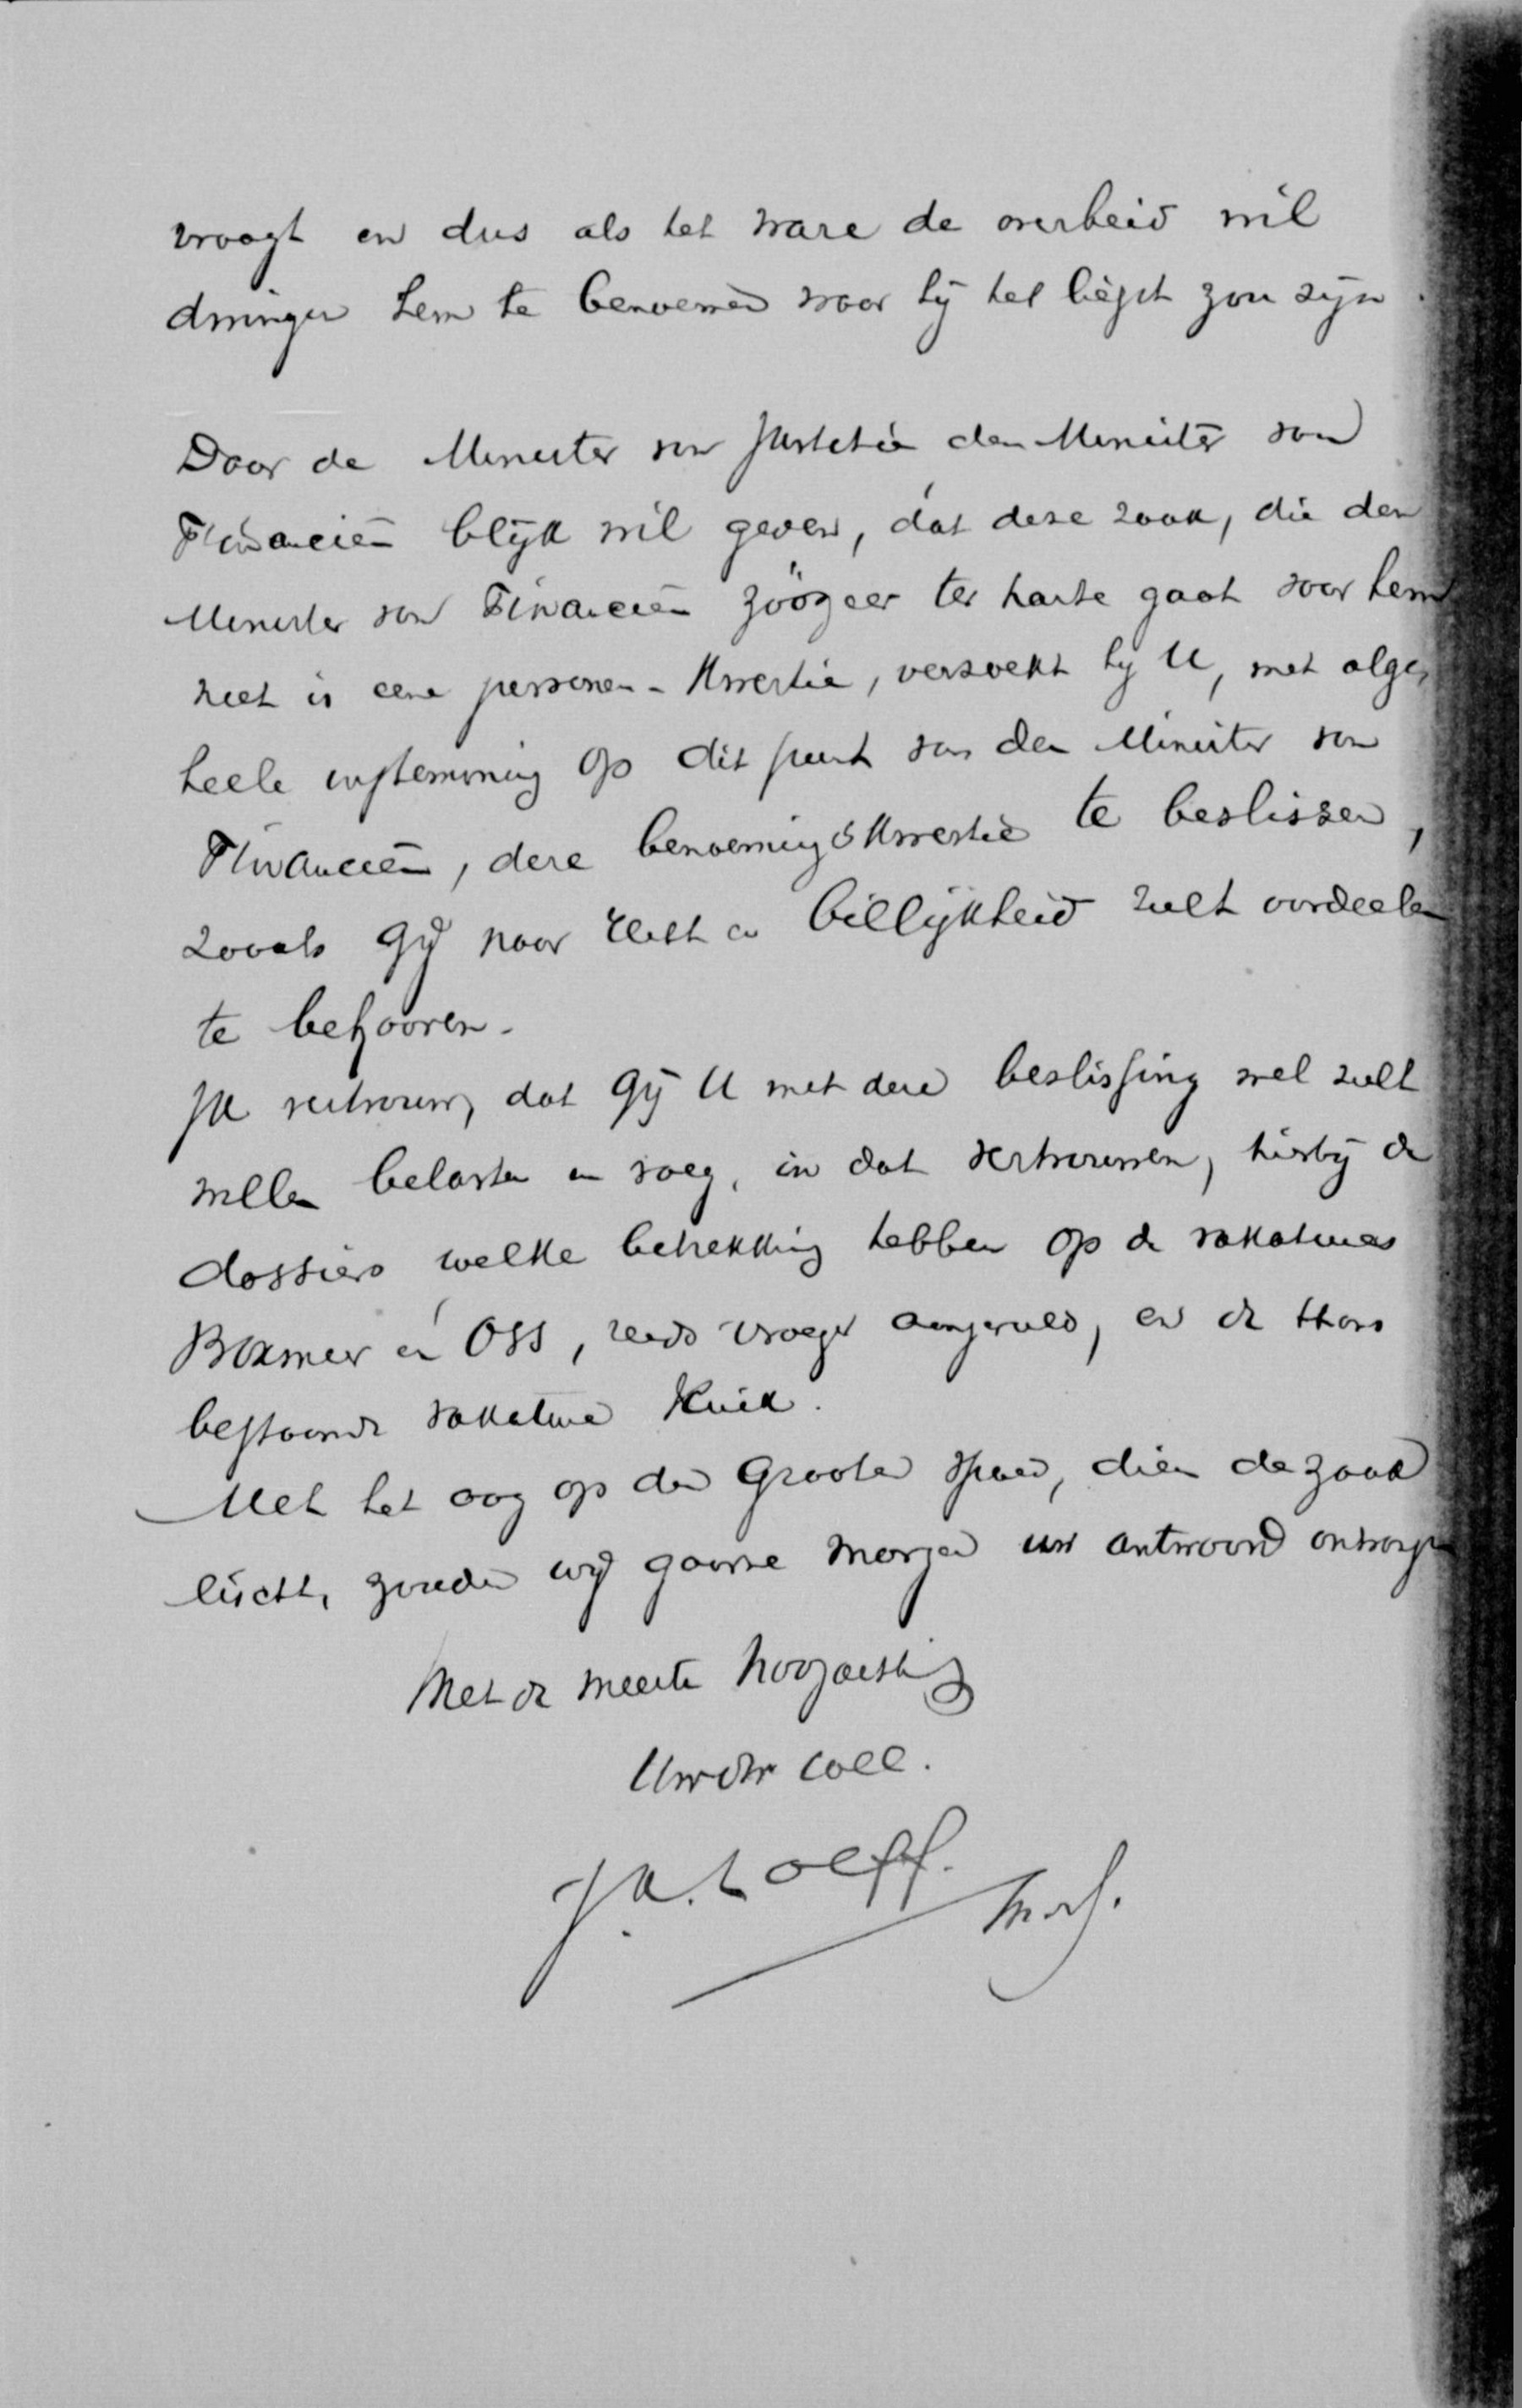 vraagt en dus als het ware de overheid wil
dwingen hem te benoemen waar hij het liefst zou zijn.
Daar de Minister van Justitie den Minister van
Financiën blijk wil geven, dat deze zaak, die den
Minister van Financiën zóózeer ter harte gaat voor hem
niet is eene personen-kwestie, verzoekt hij U, met alge-
heele instemming op dit punt van den Minister van
Financiën, deze benoemingskwestie te beslissen,
zooals Gij naar recht en billijkheid zult oordeelen
te behooren.
Ik vertrouw, dat Gij U met deze beslissing wel zult
willen belasten en voeg, in dat vertrouwen, hierbij de
dossiers welke betrekking hebben op de vakatures
Boxmeer en Oss, reeds vroeger aangevuld, en de thans
bestaande vakature Kuik.
Met het oog op den Grooten spoed, dien de zaak
eischt, zouden wij gaarne morgen uw antwoord ontvangen
Met de meeste hoogachting
Uw dw coll.
J.A. Loeff.